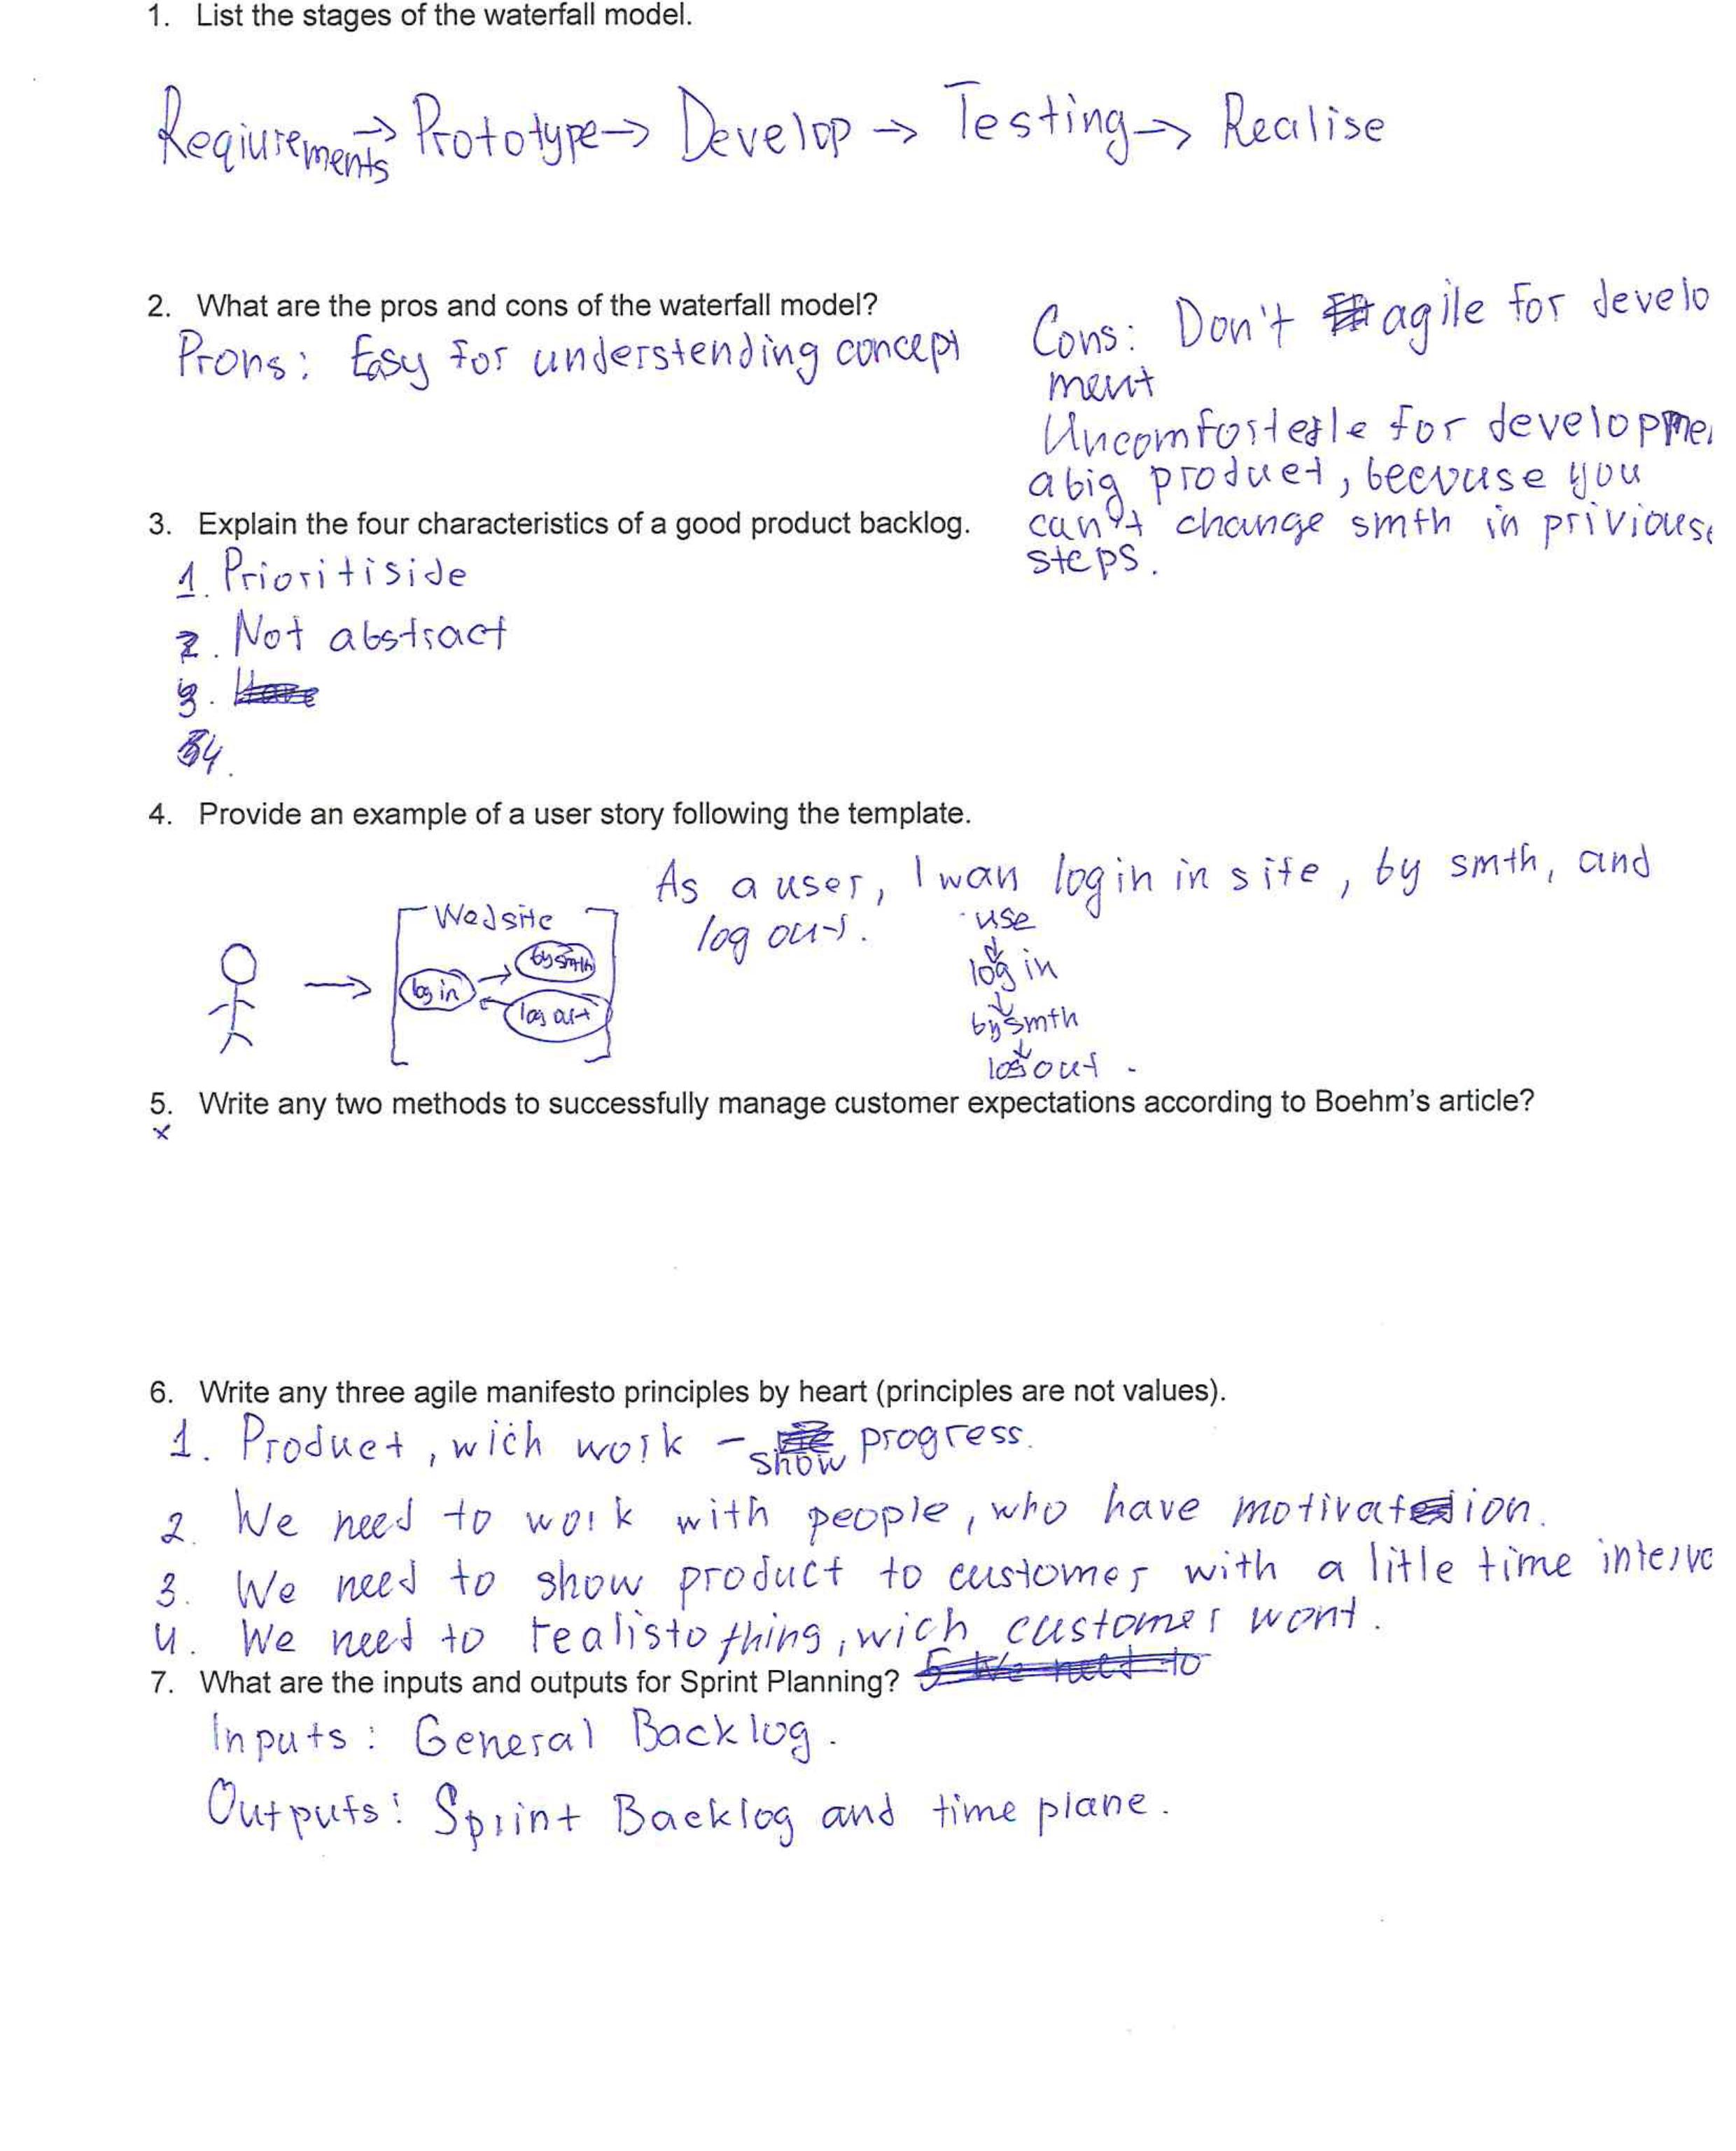 1. List the stages of the waterfall model.
Reqiurements → Prototype → Develop → Testing → Realise
2. What are the pros and cons of the waterfall model?
Prons: Easy for understending concept
Cons: Don't agile for develo
ment
Uncomforterle for developme
a big product, becvuse you
can't change smth in privious
steps.
3. Explain the four characteristics of a good product backlog.
1. Prioritiside
2. Not abstract
3.
4.
4. Provide an example of a user story following the template.
As a user, I wan log in in site, by smth, and
log out.
Wedsite
by smth
log in
log out
use
log in
by smth
log out.
5. Write any two methods to successfully manage customer expectations according to Boehm's article?
x
6. Write any three agile manifesto principles by heart (principles are not values).
1. Product, wich work - show progress.
2. We need to work with people, who have motivation.
3. We need to show product to customer with a litle time interva
4. We need to realisto thing, wich customer wont.
5 We need to
7. What are the inputs and outputs for Sprint Planning?
Inputs: General Backlog.
Outputs: Sprint Backlog and time plane.